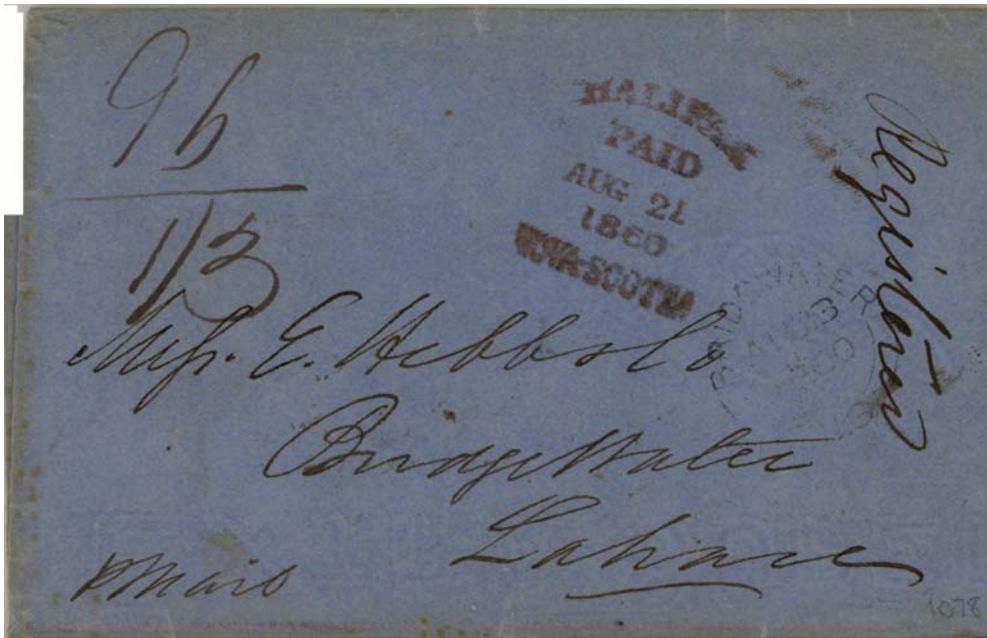 96
1/3
HALIFAX
PAID
AUG 21
1860
NOVA-SCOTIA
Registered
BRIDGWATER
Miss. E. Hebbs
Bridgewater
Lahave
p Mail
1078